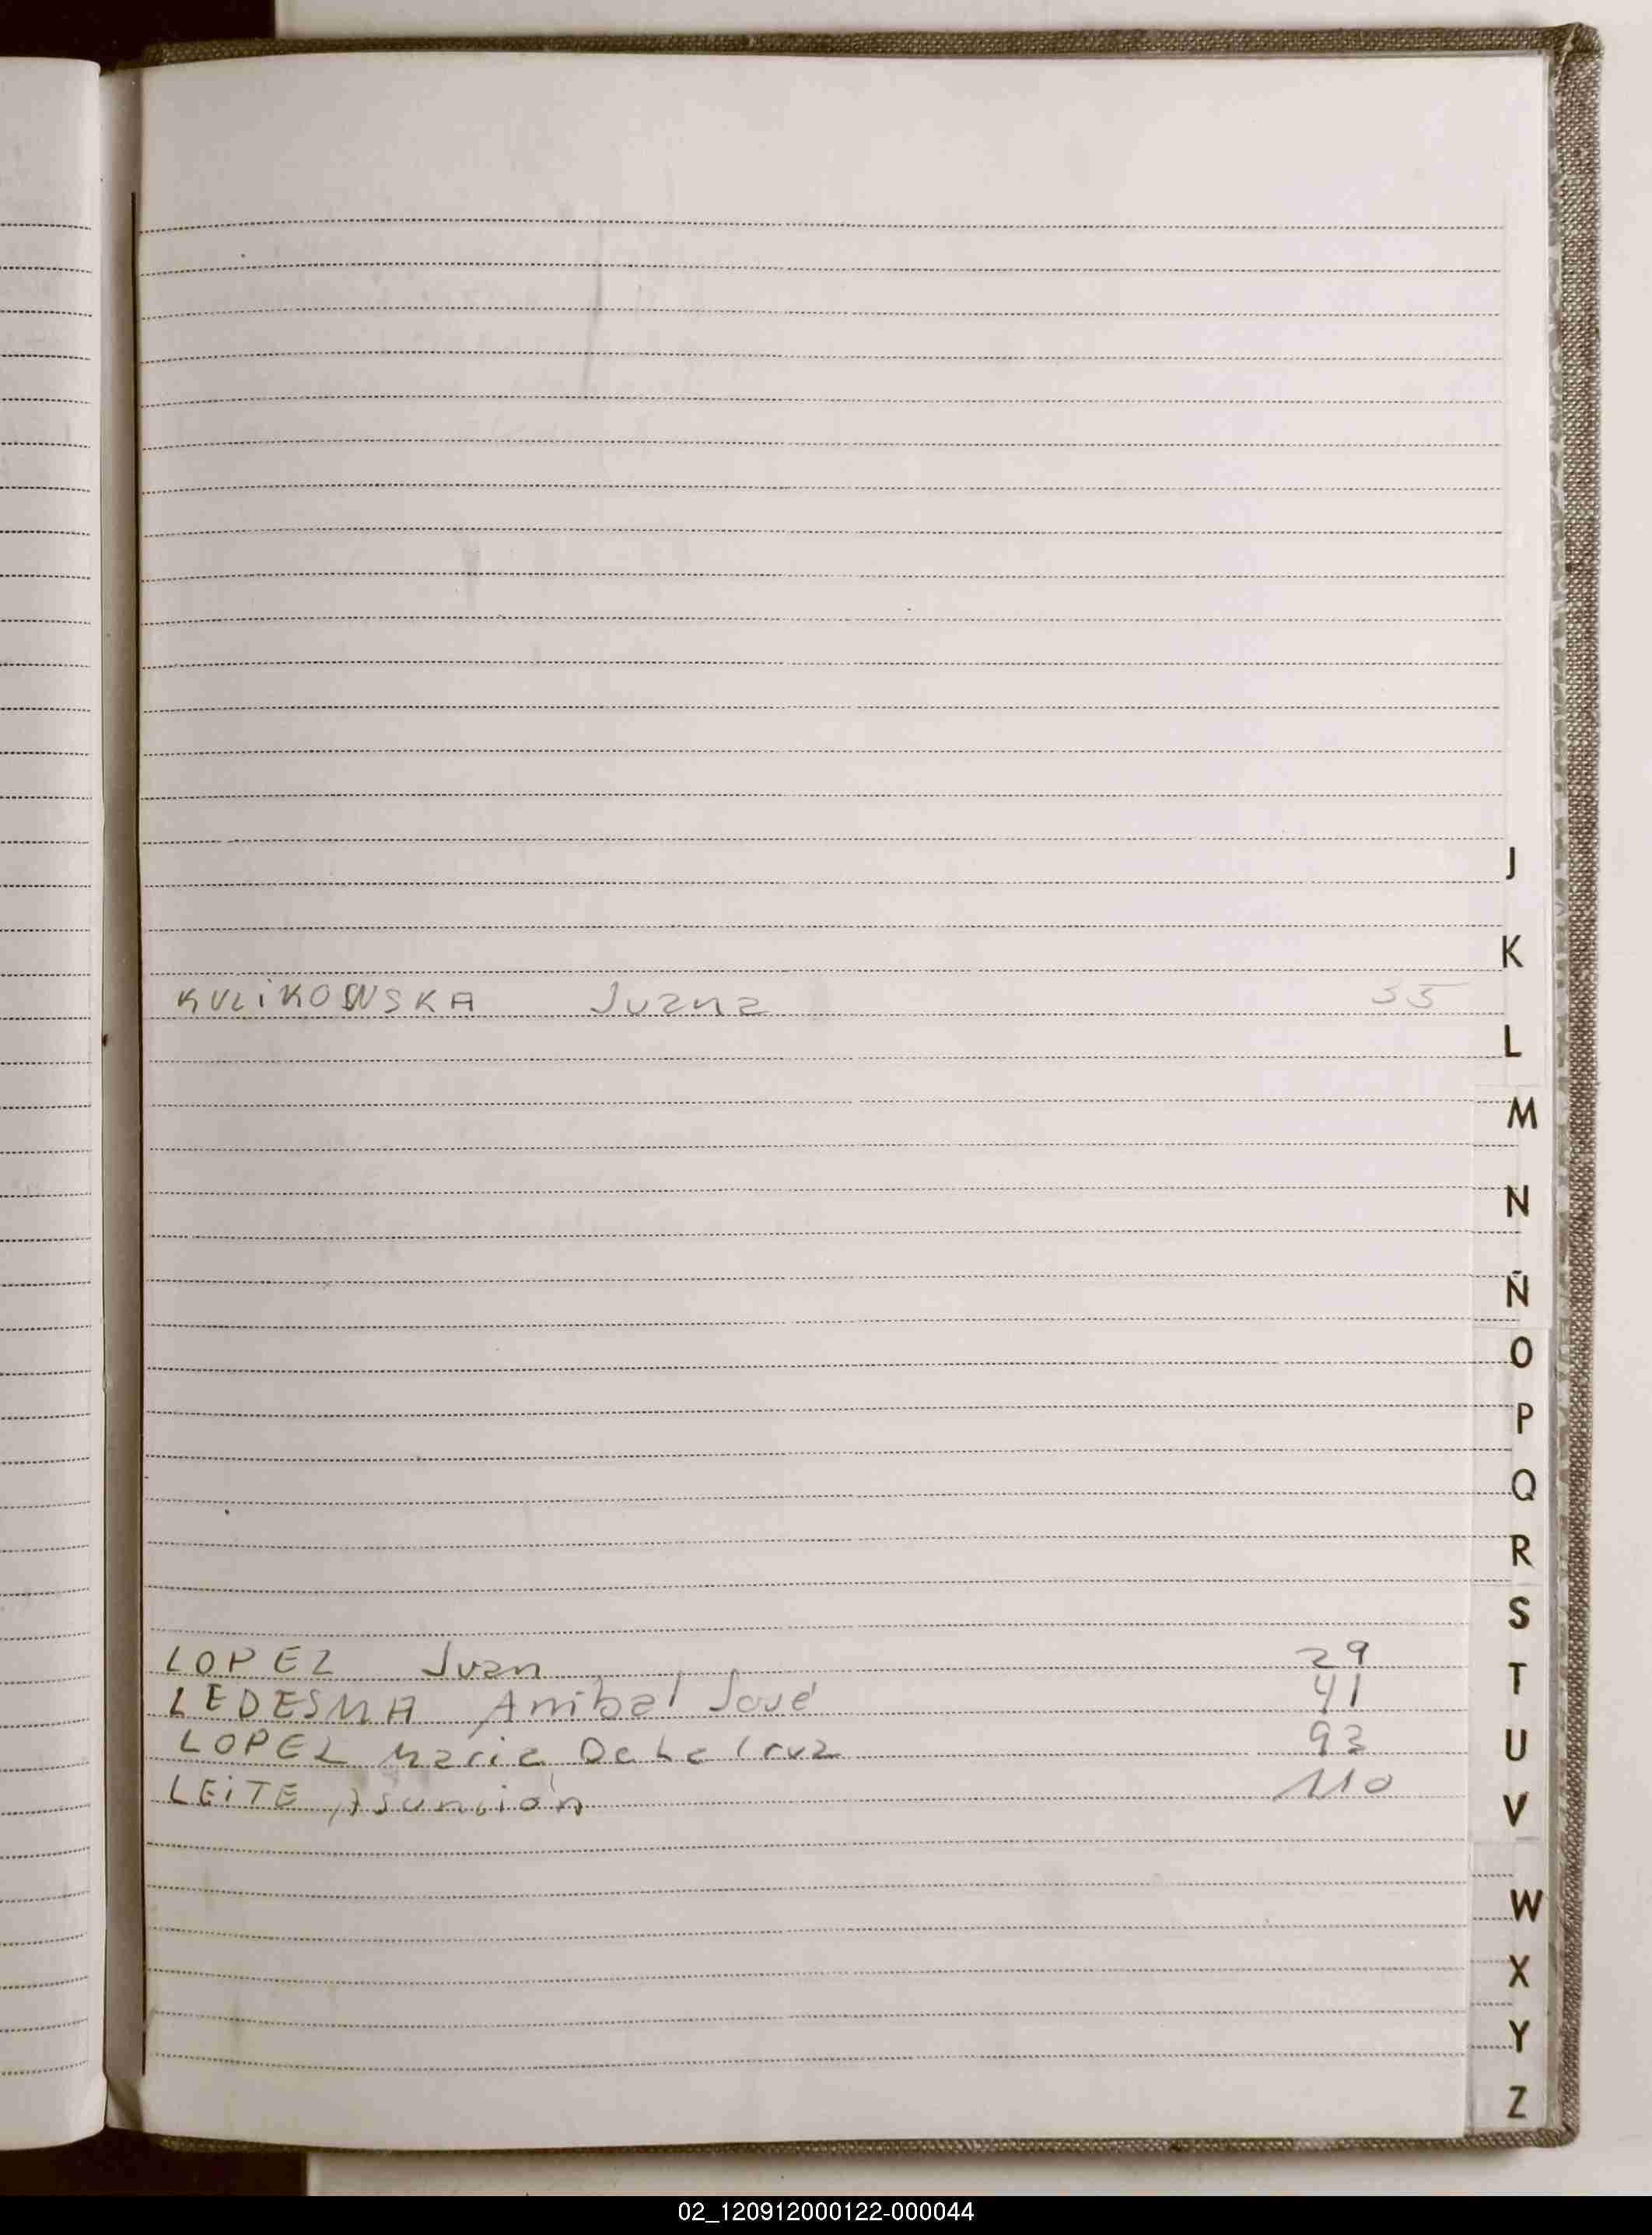 J
K
KULiKOWSKA Juana 35
L
M
N
Ñ
O
P
Q
R
S
LOPEZ Juan 29
T
LEDESMA Anibal José 41
U
LOPEZ Maria De La Cruz 93
LEiTE Asunción 110
V
W
X
Y
Z
02_120912000122-000044